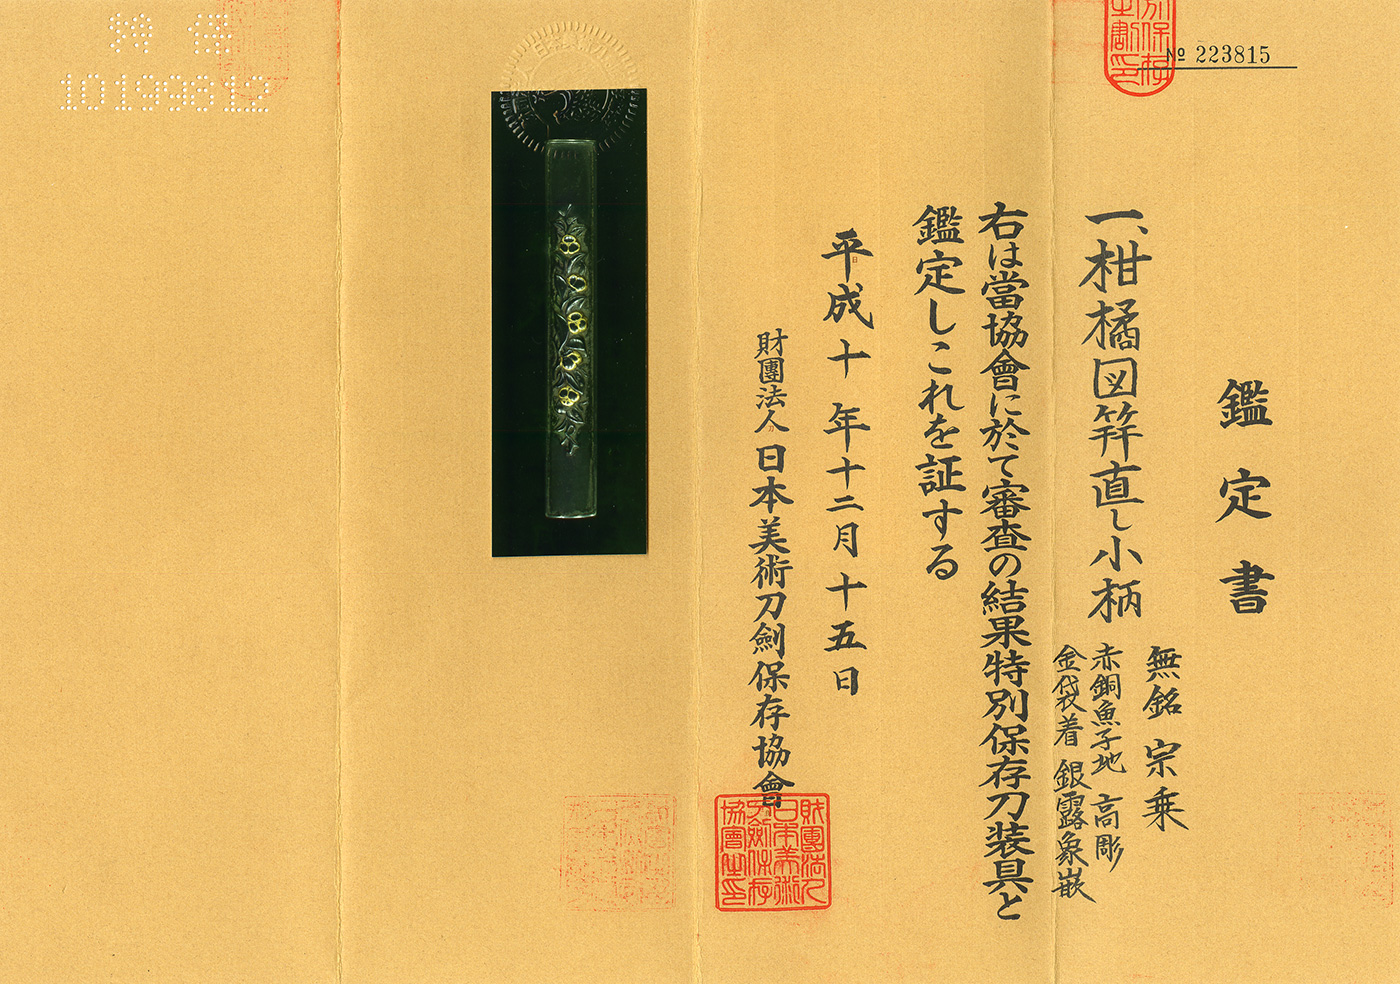 № 223815
鑑定書
一、柑橘図笄直し小柄
無銘 宗乗
赤銅魚子地 高彫
金袋着 銀露象嵌
右は當協會に於て審査の結果特別保存刀装具と
鑑定しこれを証する
平成十年十二月十五日
財團法人日本美術刀劍保存協會
財團法人
日本美術
刀劍保存
協會之印
特保
10199812